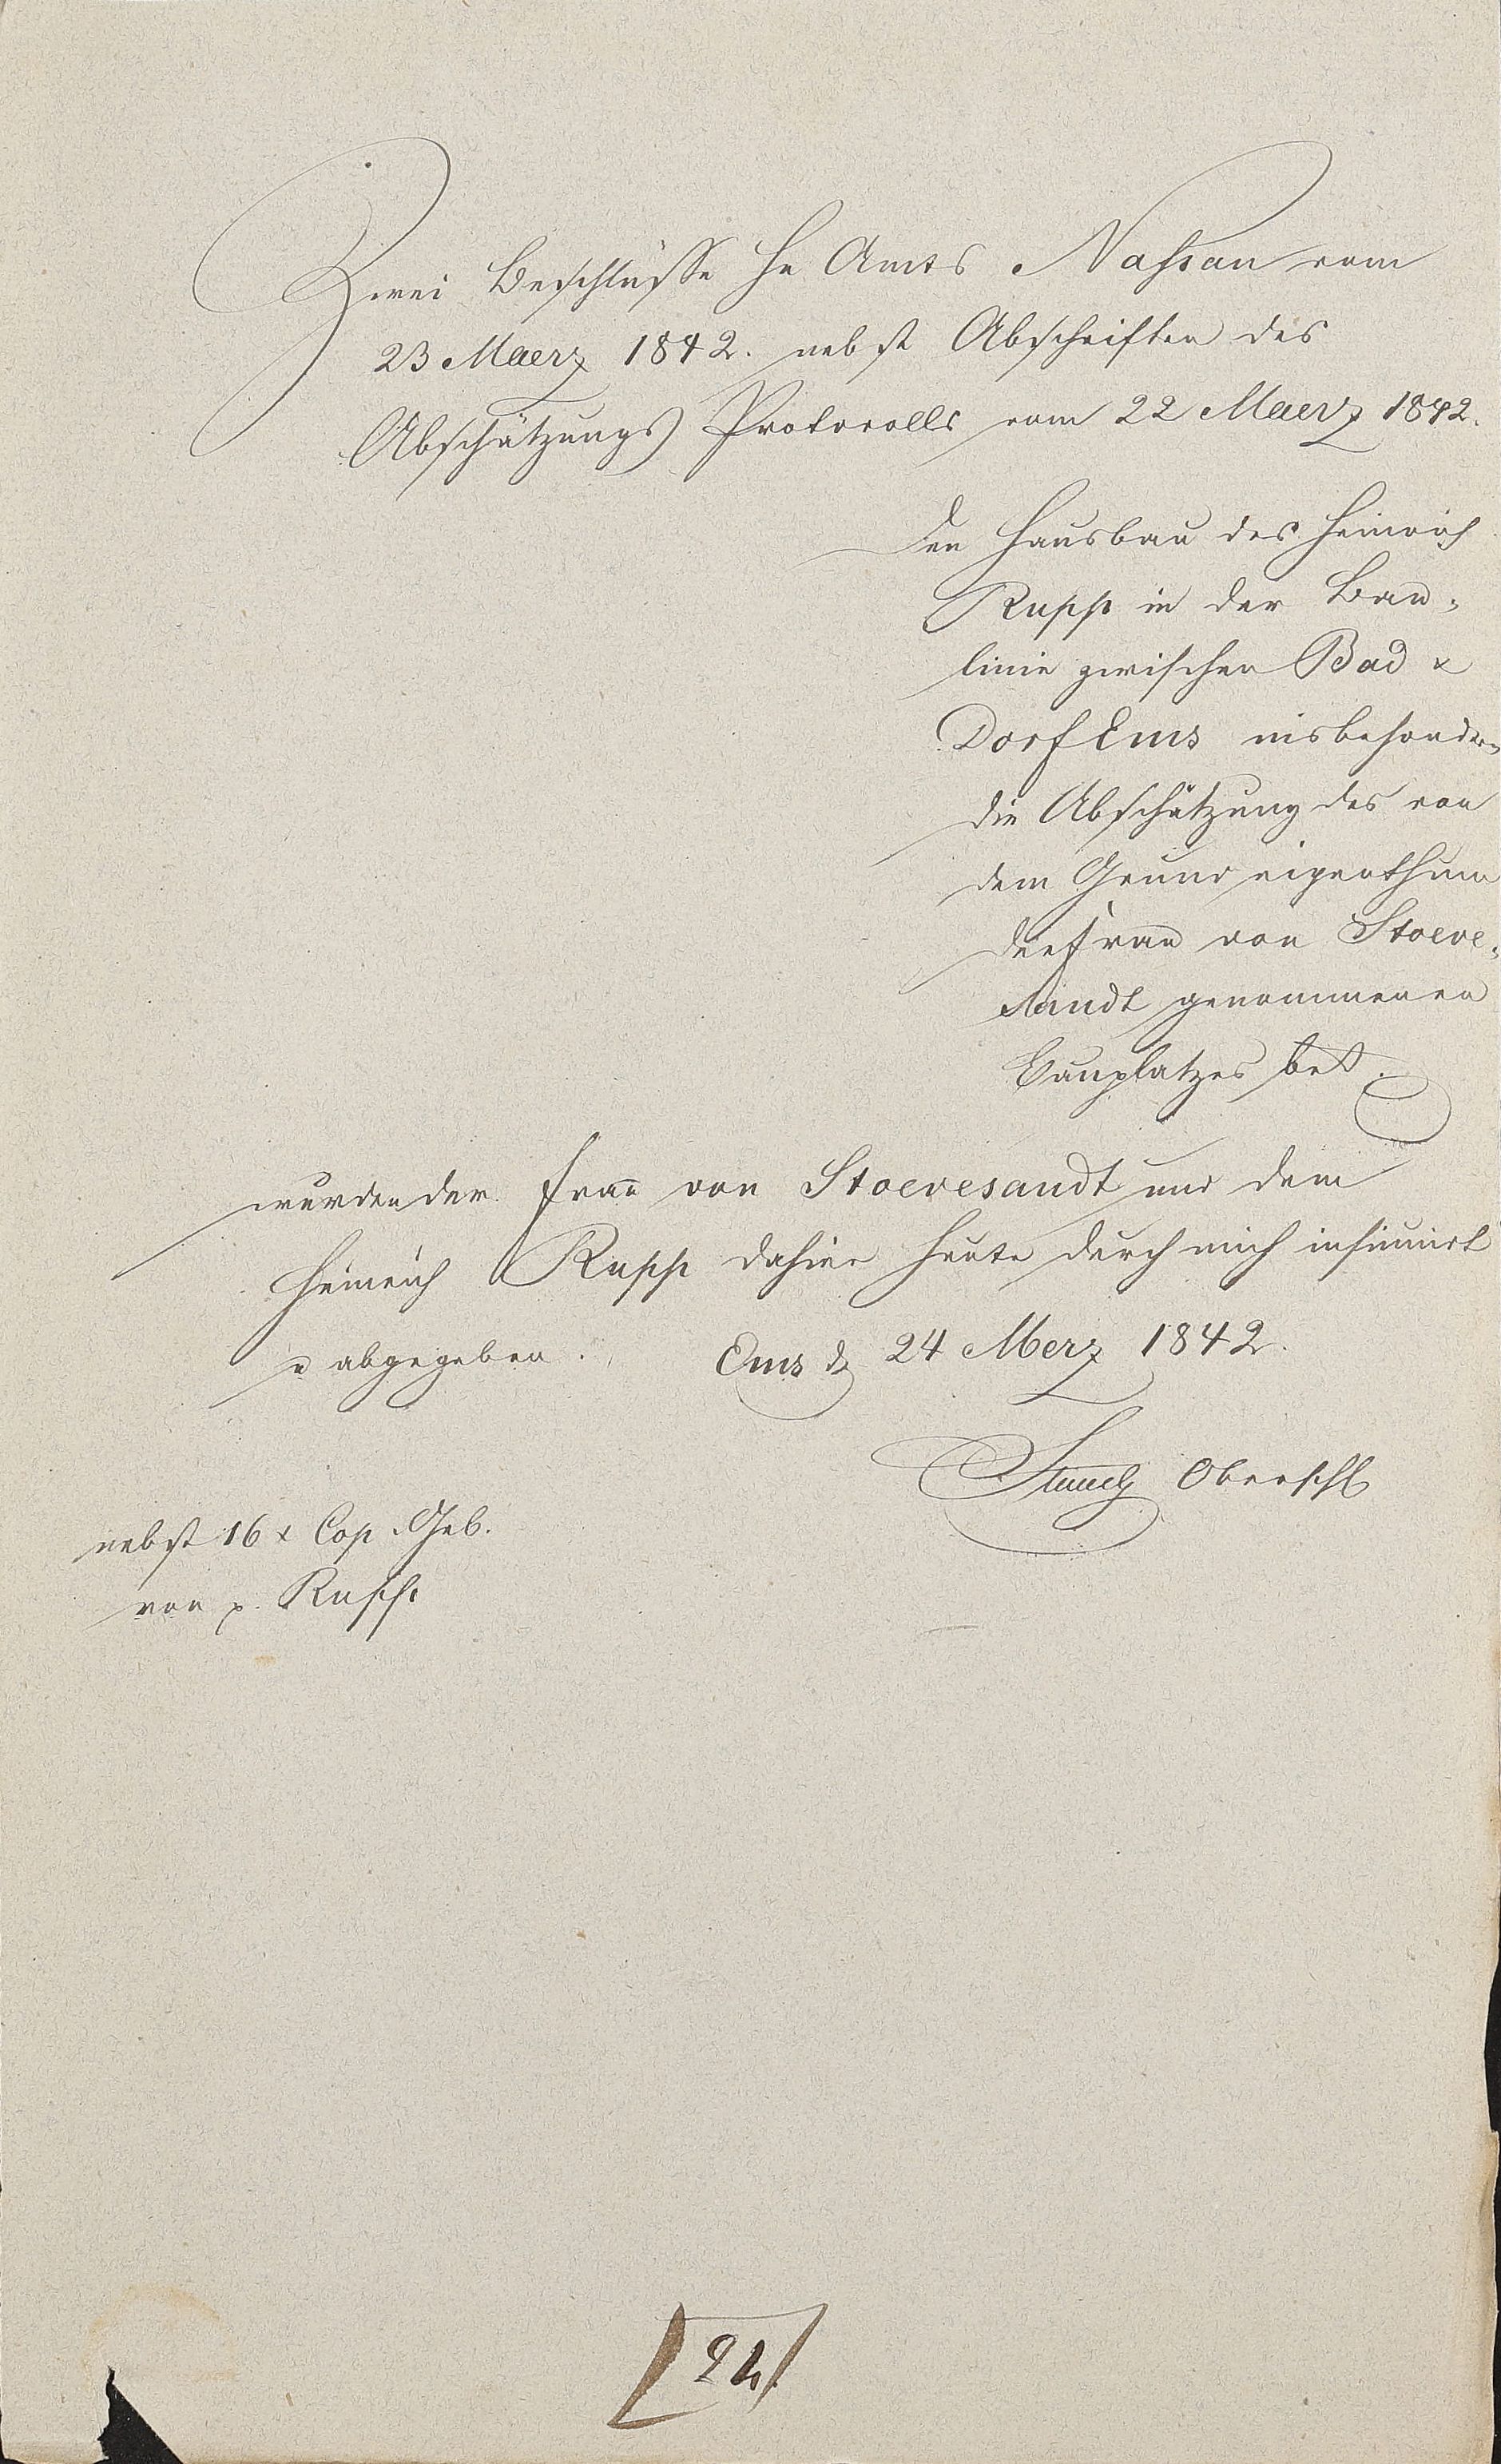 Zwei Beschlüsse Hz Amts Nassau vom
23 Maerz 1842. nebst Abschriften des
Abschätzungs Protocolls vom 22 Maerz 1842.
Den Hausbau des Heinrich
Rupp in der Bau-
linie zwischen Bad &
Dorf Ems insbesondere
die Abschätzung des von
dem Grundeigenthum
der Frau von Stoeve-
sandt genommenen
Bauplatzes bet.
wurden der Frau von Stoevesandt und dem
Heinrich Rupp dahier heute durch mich insinuirt
u abgegeben. Ems d 24 Merz 1842.
Oberschlh
nebst 16 x Cop. Geb.
von p. Rupp.
24